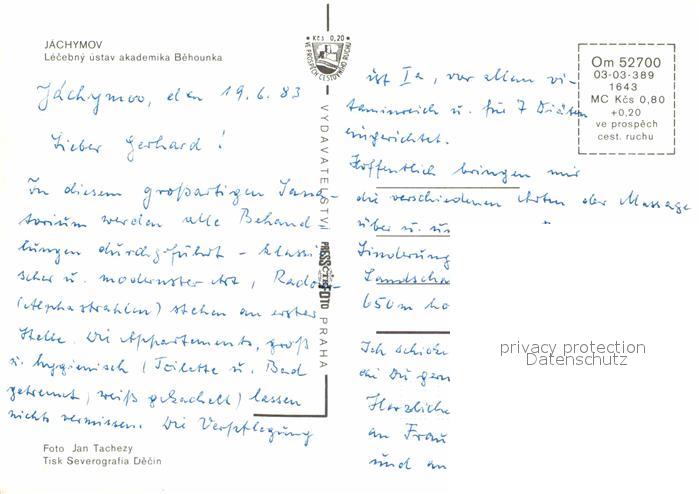 JÁCHYMOV
Léčebný ústav akademika Běhounka
Jáchymov, den 19.6.83
Lieber Gerhard!
In diesem großartigen Sana-
torium werden alle Behand-
lungen durchgeführt - klassi-
scher u. modernster Art, Radon
(Alphastrahlen) stehen an erster
Stelle. Die Appartements, groß
u. hygienisch (Toilette u. Bad
getrennt, weiß gekachelt) lassen
nichts vermissen. Die Verpflegung
Foto Jan Tachezy
Tisk Severografia Děčín
Kčs 0,20
VE PROSPĚCH CESTOVNÍHO RUCHU
VYDAVATELSTVÍ PRESSFOTO PRAHA
ist Ia, vor allem vi-
taminreich u. für 7 Diäten
eingerichtet.
Hoffentlich bringen mir
die verschiedenen Arten der Massage
über u. un
Linderung
Landscha
650 m ho
Ich schicke
die Du gern
Herzliche
an Frau
und an
Om 52700
03-03-389
1643
MC Kčs 0,80
+0,20
ve prospěch
cest. ruchu
privacy protection
Datenschutz